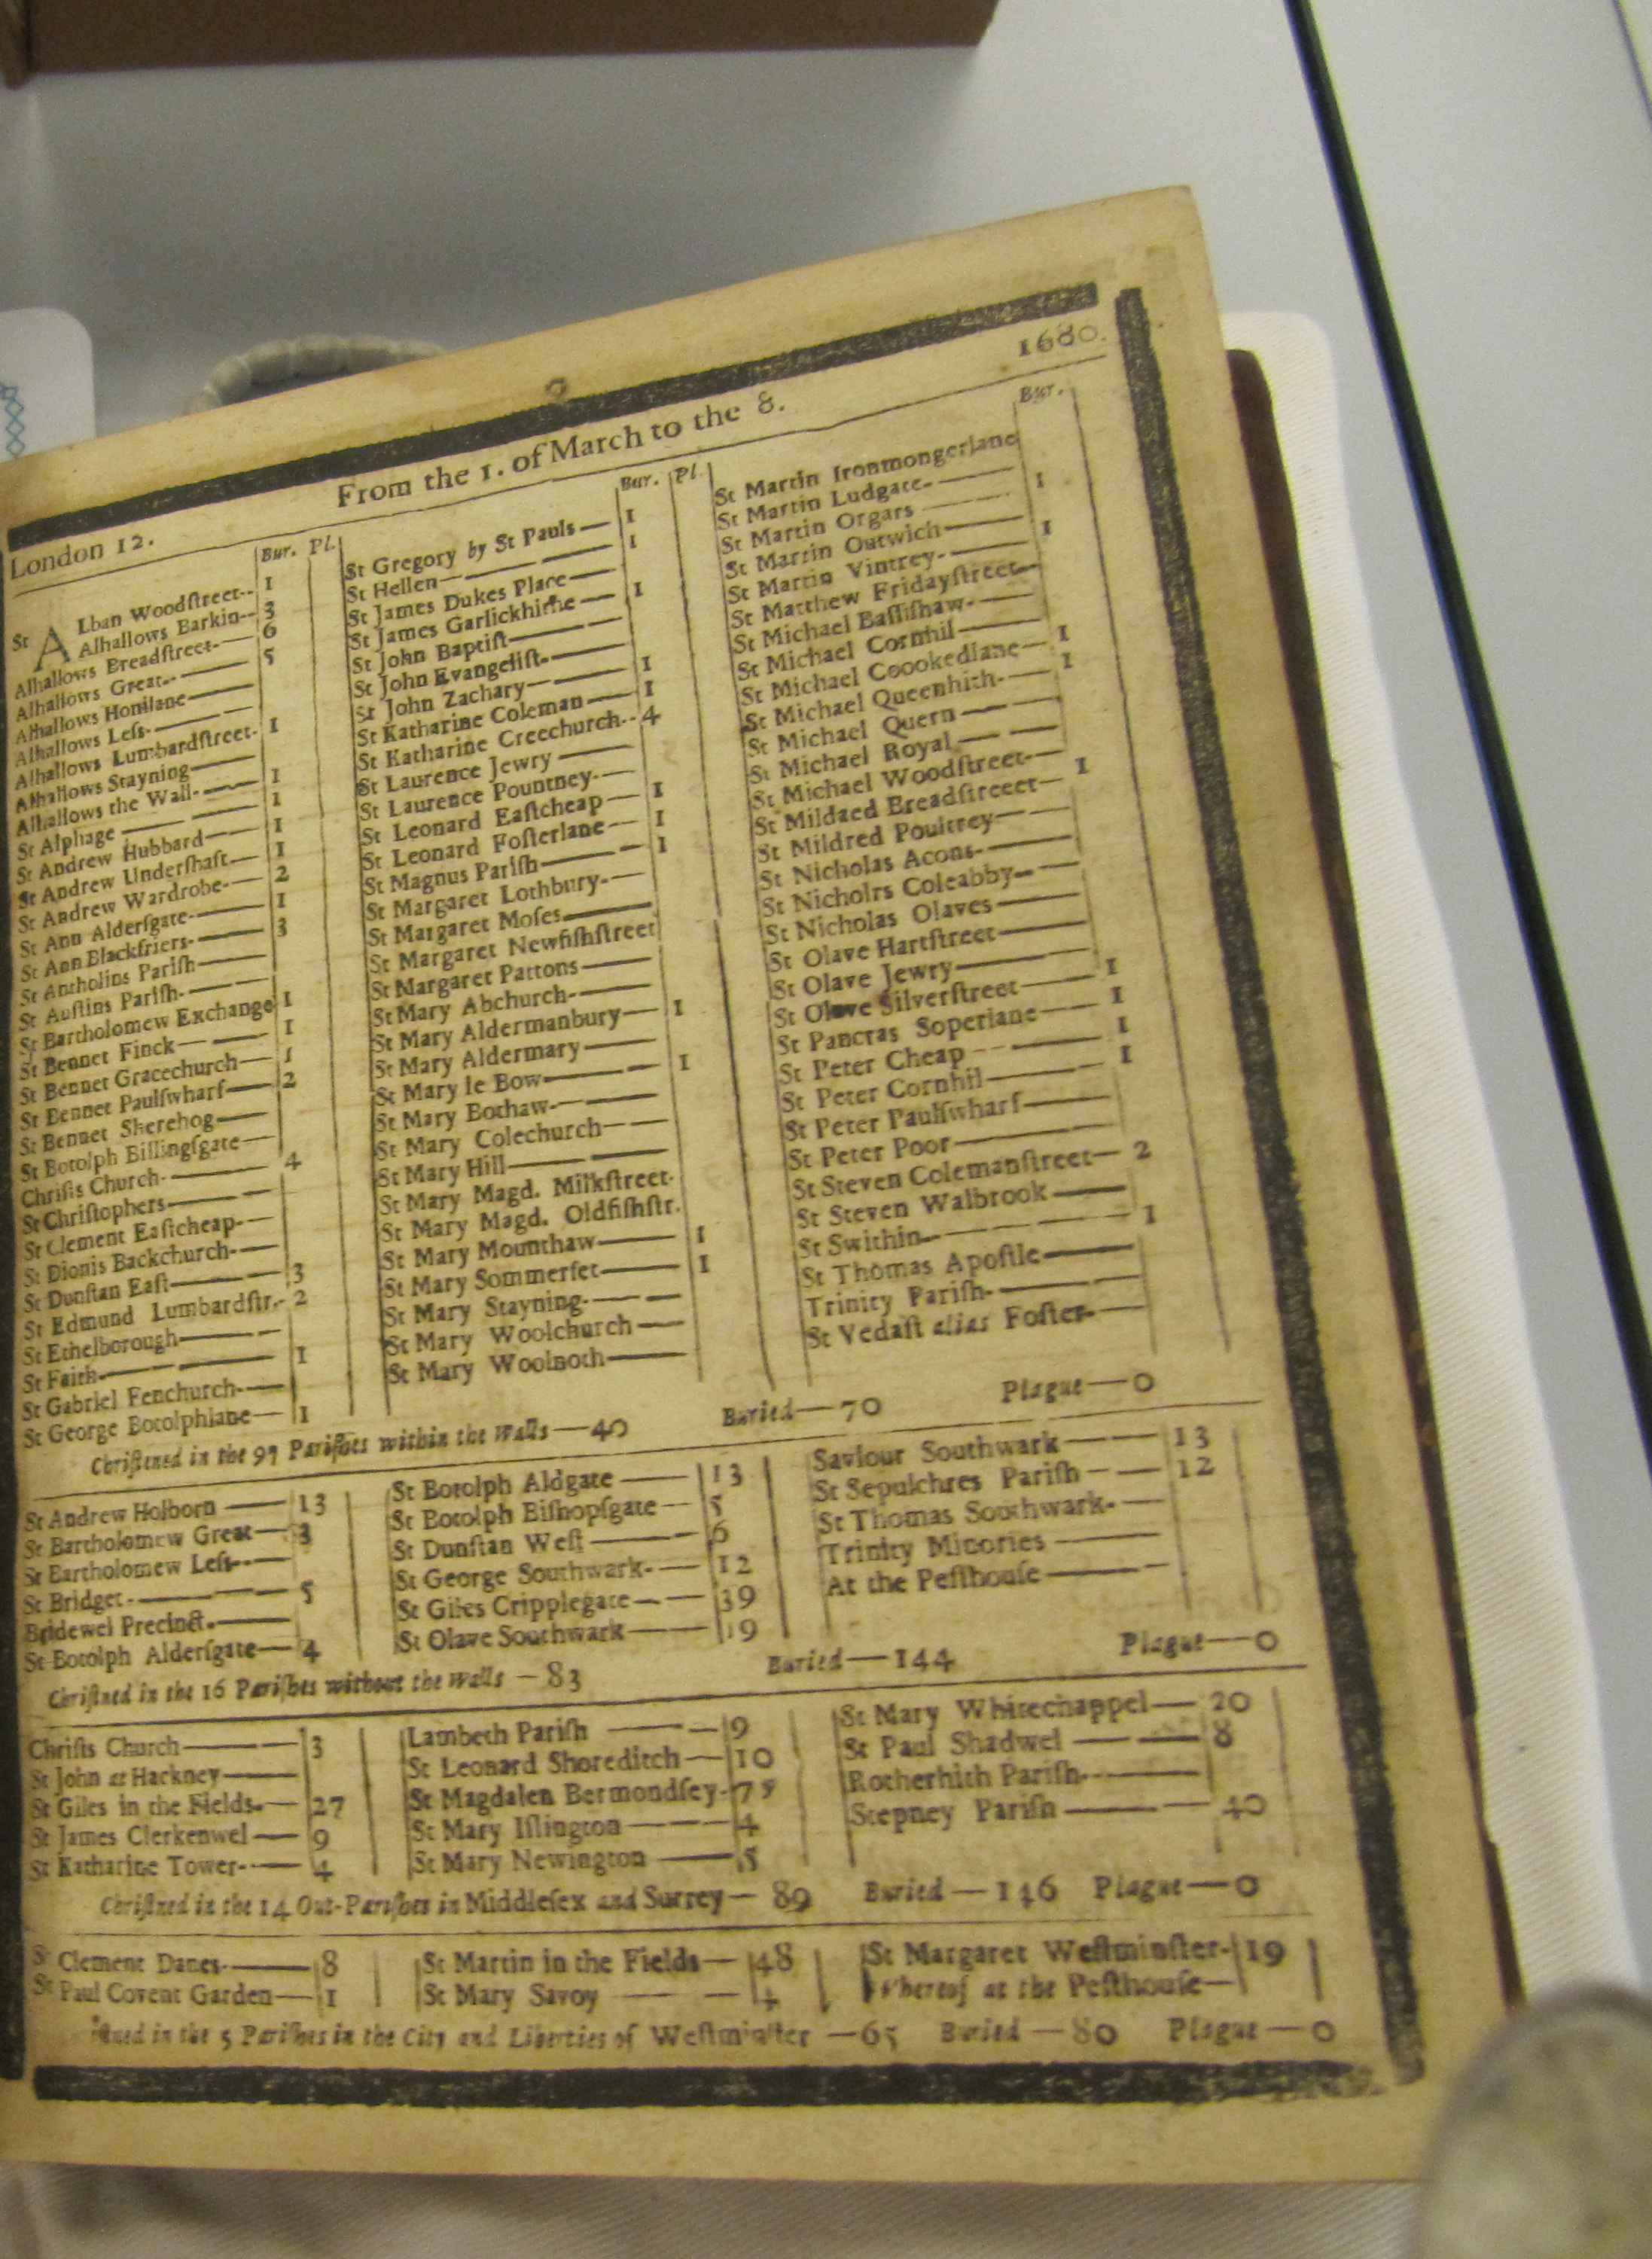 From the 1. of March to the 8.
London 12. 1680.
Bur. Pl.
St ALban Woodſtreet-- 1
Alhallows Barkin-- 3
Alhallows Breadſtreet- 6
Alhallows Great-- 5
Alhallows Honilane
Alhallows Leſs-
Alhallows Lumbardſtreet- 1
Alhallows Stayning
Alhallows the Wall- 1
St Alphage 1
St Andrew Hubbard 1
St Andrew Underſhaft 1
St Andrew Wardrobe- 2
St Ann Alderſgate- 1
St Ann Blackfriers- 3
St Antholins Pariſh
St Auſtins Pariſh-
St Bartholomew Exchange 1
St Bennet Finck 1
St Bennet Gracechurch 1
St Bennet Paulſwharf 2
St Bennet Sherehog
St Botolph Billingſgate
Chriſts Church- 4
St Chriſtophers
St Clement Eaſtcheap-
St Dionis Backchurch-
St Dunſtan Eaſt 3
St Edmund Lumbardſtr.- 2
St Ethelborough
St Faith 1
St Gabriel Fenchurch-
St George Botolphlane 1
Bur. Pl.
St Gregory by St Pauls — 1
St Hellen 1
St James Dukes Place
St James Garlickhithe — 1
St John Baptiſt
St John Evangeliſt-
St John Zachary 1
St Katharine Coleman — 1
St Katharine Creechurch-- 4
St Laurence Jewry
St Laurence Pountney-
St Leonard Eaſtcheap — 1
St Leonard Foſterlane — 1
St Magnus Pariſh 1
St Margaret Lothbury-
St Margaret Moſes
St Margaret Newfiſhſtreet
St Margaret Pattons
St Mary Abchurch-
St Mary Aldermanbury 1
St Mary Aldermary
St Mary le Bow 1
St Mary Bothaw-
St Mary Colechurch
St Mary Hill
St Mary Magd. Milkſtreet-
St Mary Magd. Oldfiſhſtr.
St Mary Mounthaw 1
St Mary Sommerſet 1
St Mary Stayning-
St Mary Woolchurch
St Mary Woolnoth
Bur.
St Martin Ironmongerlane
St Martin Ludgate- 1
St Martin Orgars
St Martin Outwich 1
St Martin Vintrey-
St Matthew Fridayſtreet
St Michael Baſſiſhaw-
St Michael Cornhil 1
St Michael Coookedlane 1
St Michael Queenhith-
St Michael Quern
St Michael Royal
St Michael Woodſtreet-
St Mildaed Breadſtreeet 1
St Mildred Poultrey
St Nicholas Acons-
St Nicholrs Coleabby-
St Nicholas Olaves
St Olave Hartſtreet
St Olave Jewry
St Olave Silverſtreet 1
St Pancras Soperlane 1
St Peter Cheap 1
St Peter Cornhil 1
St Peter Paulſwharf
St Peter Poor
St Steven Colemanſtreet 2
St Steven Walbrook
St Swithin 1
St Thomas Apoſtle
Trinity Pariſh-
St Vedaſt alias Foſter-
Chriſtened in the 97 Pariſhes within the Walls — 40 Buried — 70 Plague — 0
St Andrew Holborn — 13
St Bartholomew Great 3
St Bartholomew Leſs
St Bridget- 5
Bridewel Precinct-
St Botolph Alderſgate 4
St Botolph Aldgate — 13
St Botolph Biſhopſgate 5
St Dunſtan Weſt 6
St George Southwark- 12
St Giles Cripplegate 39
St Olave Southwark 19
Saviour Southwark 13
St Sepulchres Pariſh 12
St Thomas Southwark-
Trinity Minories
At the Peſthouſe
Chriſtned in the 16 Pariſhes without the Walls — 83 Buried — 144 Plague — 0
Chriſts Church 3
St John at Hackney
St Giles in the Fields- 27
St James Clerkenwel 9
St Katharine Tower- 4
Lambeth Pariſh 9
St Leonard Shoreditch 10
St Magdalen Bermondſey-
St Mary Iſlington 4
St Mary Newington 5
St Mary Whitechappel 20
St Paul Shadwel 8
Rotherhith Pariſh-
Stepney Pariſh 40
Chriſtned in the 14 Out-Pariſhes in Middleſex and Surrey — 89 Buried — 146 Plague — 0
St Clement Danes- 8
St Paul Covent Garden 1
St Martin in the Fields 48
St Mary Savoy 4
St Margaret Weſtminſter- 19
Whereof at the Peſthouſe
in the 5 Pariſhes in the City and Liberties of Weſtminſter — 65 Buried — 80 Plague — 0